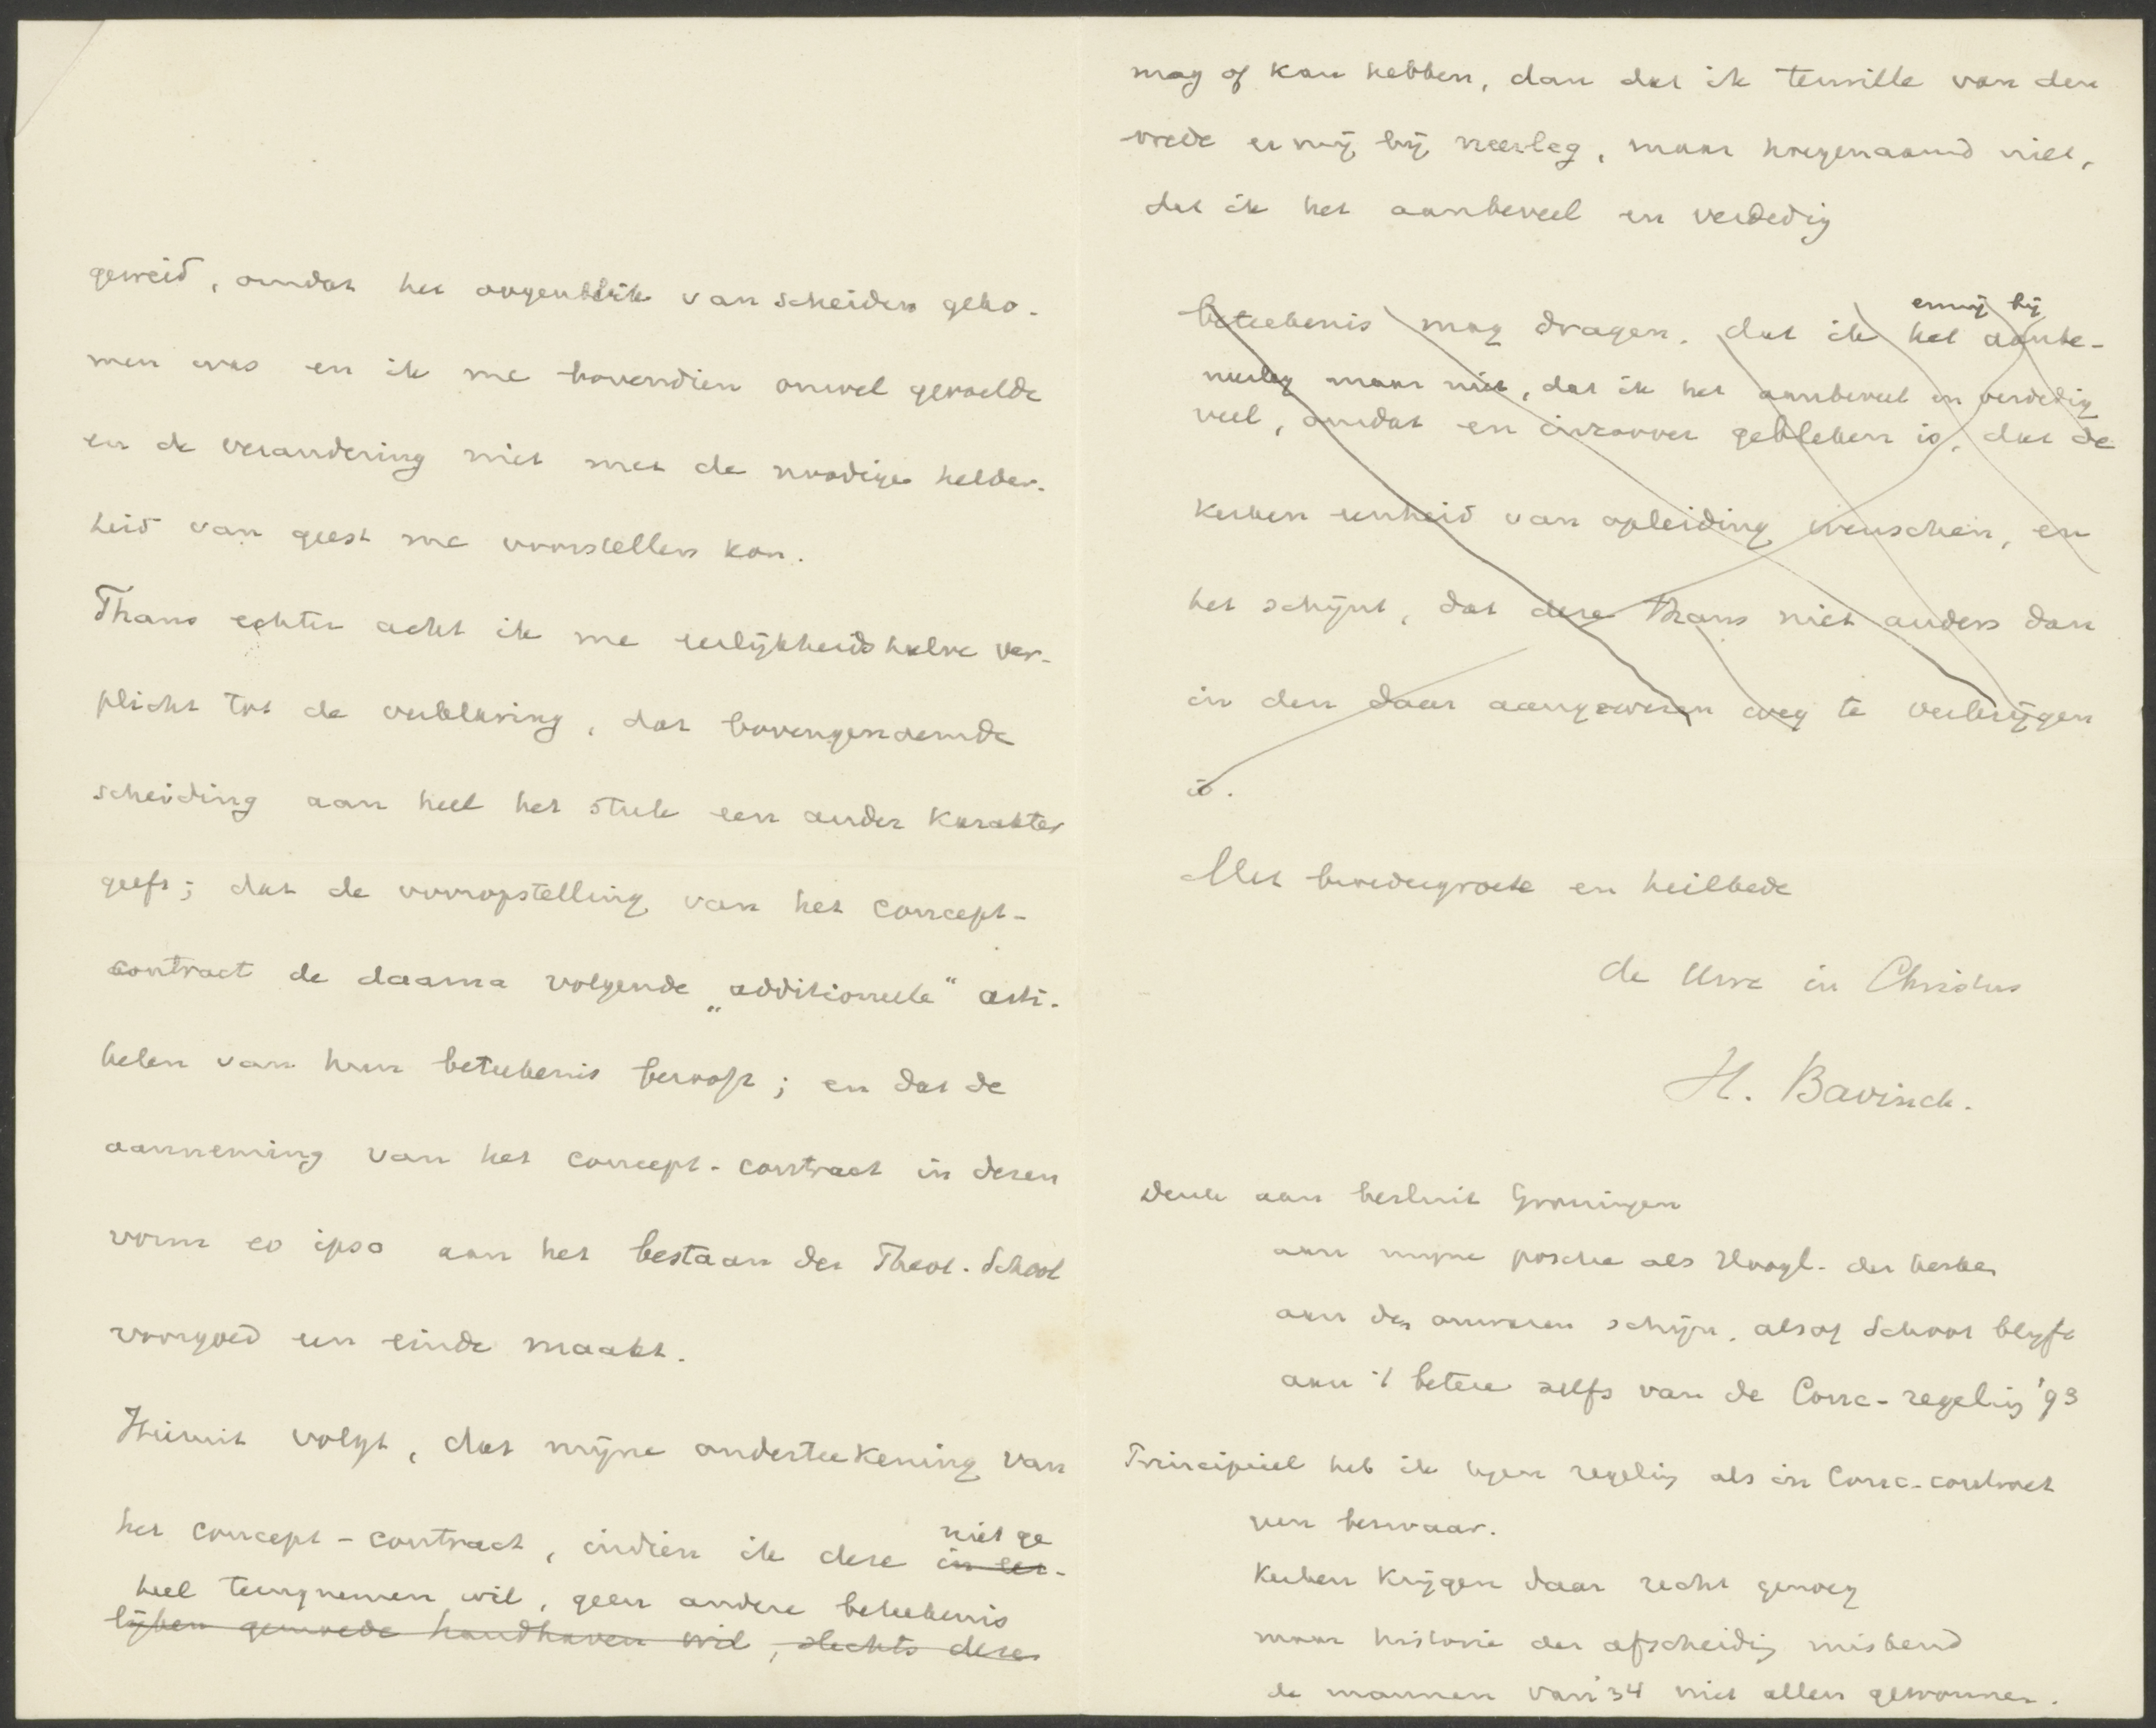 geweid, omdat het oogenblik van scheiden geko-
men was en ik me bovendien onwel gevoelde
en de verandering niet met de noodige helder-
heid van geest me voorstellen kon.
Thans echter acht ik me eerlijkheidshalve ver-
plicht tot de verklaring, dat bovengenoemde
scheiding aan heel het stuk een ander karakter
geeft; dat de vooropstelling van het concept-
contract de daarna volgende „additioneele" arti-
kelen van hun beteekenis berooft; en dat de
aanneming van het concept-contract in dezen
vorm eo ipso aan het bestaan der Theol. School
voorgoed een einde maakt.
Hieruit volgt, dat mijne onderteekening van
niet ge
het concept-contract, indien ik deze in eer-
heel terugnemen wil, geen andere beteekenis
lijken gemoede handhaven wil, slechts deze
mag of kan hebben, dan dat ik terwille van den
vrede er mij bij neerleg, maar hoegenaamd niet,
dat ik het aanbeveel en verdedig
er mij bij
beteekenis mag dragen, dat ik het aanbe-
neerleg maar niet, dat ik het aanbeveel en verdedig
veel, omdat en inzoover gebleken is, dat de
kerken eenheid van opleiding wenschen, en
het schijnt, dat deze thans niet anders dan
in den daar aangewezen weg te verkrijgen
is.
Met broedergroete en heilbede
de Uwe in Christus
H. Bavinck.
Denk aan besluit Groningen
aan mijne positie als Hoogl. der kerken
aan den onwaren schijn, alsof School blijft
aan 't betere zelfs van de Conc-regeling '93
Principieel heb ik tegen regeling als in Conc-contract
geen bezwaar.
Kerken krijgen daar recht genoeg
maar historie der afscheiding miskend
de mannen van '34 niet allen gewonnen.